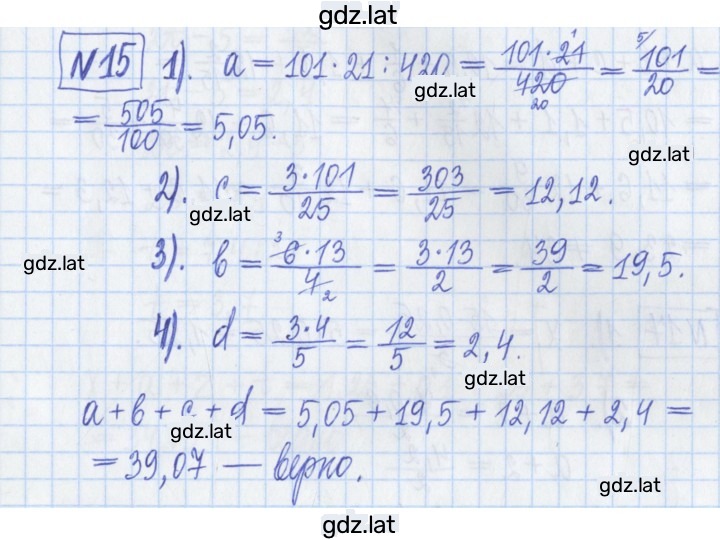 gdz.lat
№15 1). a = 101·21 : 420 = 101·21/420 20 = 5/ 101/20 =
gdz.lat
= 505/100 = 5,05.
gdz.lat
2). c = 3·101/25 = 303/25 = 12,12.
gdz.lat
3). b = 3 6·13/4 2 = 3·13/2 = 39/2 = 19,5.
gdz.lat
4). d = 3·4/5 = 12/5 = 2,4.
gdz.lat
a + b + c + d = 5,05 + 19,5 + 12,12 + 2,4 =
gdz.lat
= 39,07 — верно.
gdz.lat
gdz.lat